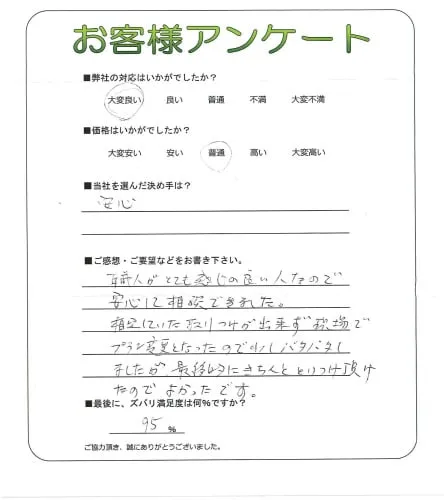 お客様アンケート
■弊社の対応はいかがでしたか?
大変良い 良い 普通 不満 大変不満
■価格はいかがでしたか?
大変安い 安い 普通 高い 大変高い
■当社を選んだ決め手は?
安心
■ご感想・ご要望などをお書き下さい。
職人がとても感じの良い人なので
安心して相談できました。
想定していた取りつけが出来ず現場で
プラン変更となったので少しバタバタし
ましたが最終的にきちんととりつけ頂け
たのでよかったです。
■最後に、ズバリ満足度は何%ですか?
95 %
ご協力頂き、誠にありがとうございました。